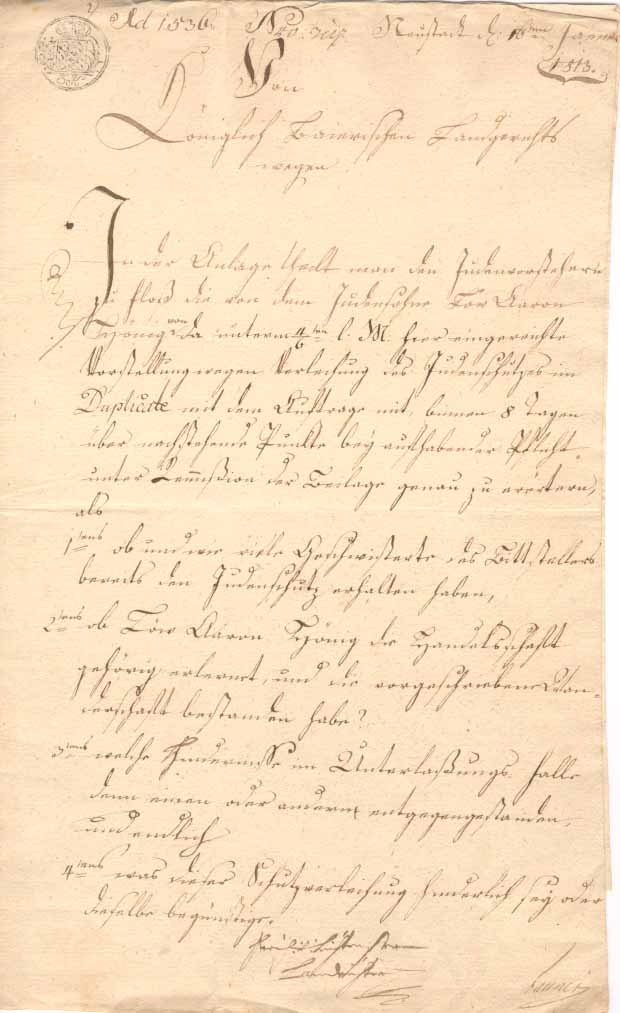 Ad 1536. Neustadt d. 16ten Jänner
1813.
Von
Königlich Baierischen Landgerichts
wegen
In der Anlage theilt man den Judenvorstehern
zu Floß die von dem Judensohne Löw Aaron
von da unterm l. M. hier eingereichte
Vorstellung wegen Verleihung des Judenschutzes im
Duplicate mit dem Auftrage mit, binnen 8 Tagen
über nachstehende Punkte bey aufhabender Pflicht
unter Remißion der Beilage genau zu erörtern,
als
1tens ob und wie viele Geschwisterte des Bittstellers
bereits den Judenschutz erhalten haben,
2tens ob Löw Aaron die Handelschaft
gehörig erlernet, und die vorgeschriebene Wan-
derschaft bestanden habe?
3tens welche Hinderniße im Unterlaßungs Falle
dem einen oder andern entgegengestanden,
und endlich
4tens was dieser Schutzverleihung hinderlich sey oder
dieselbe begünstige.
Landrichter